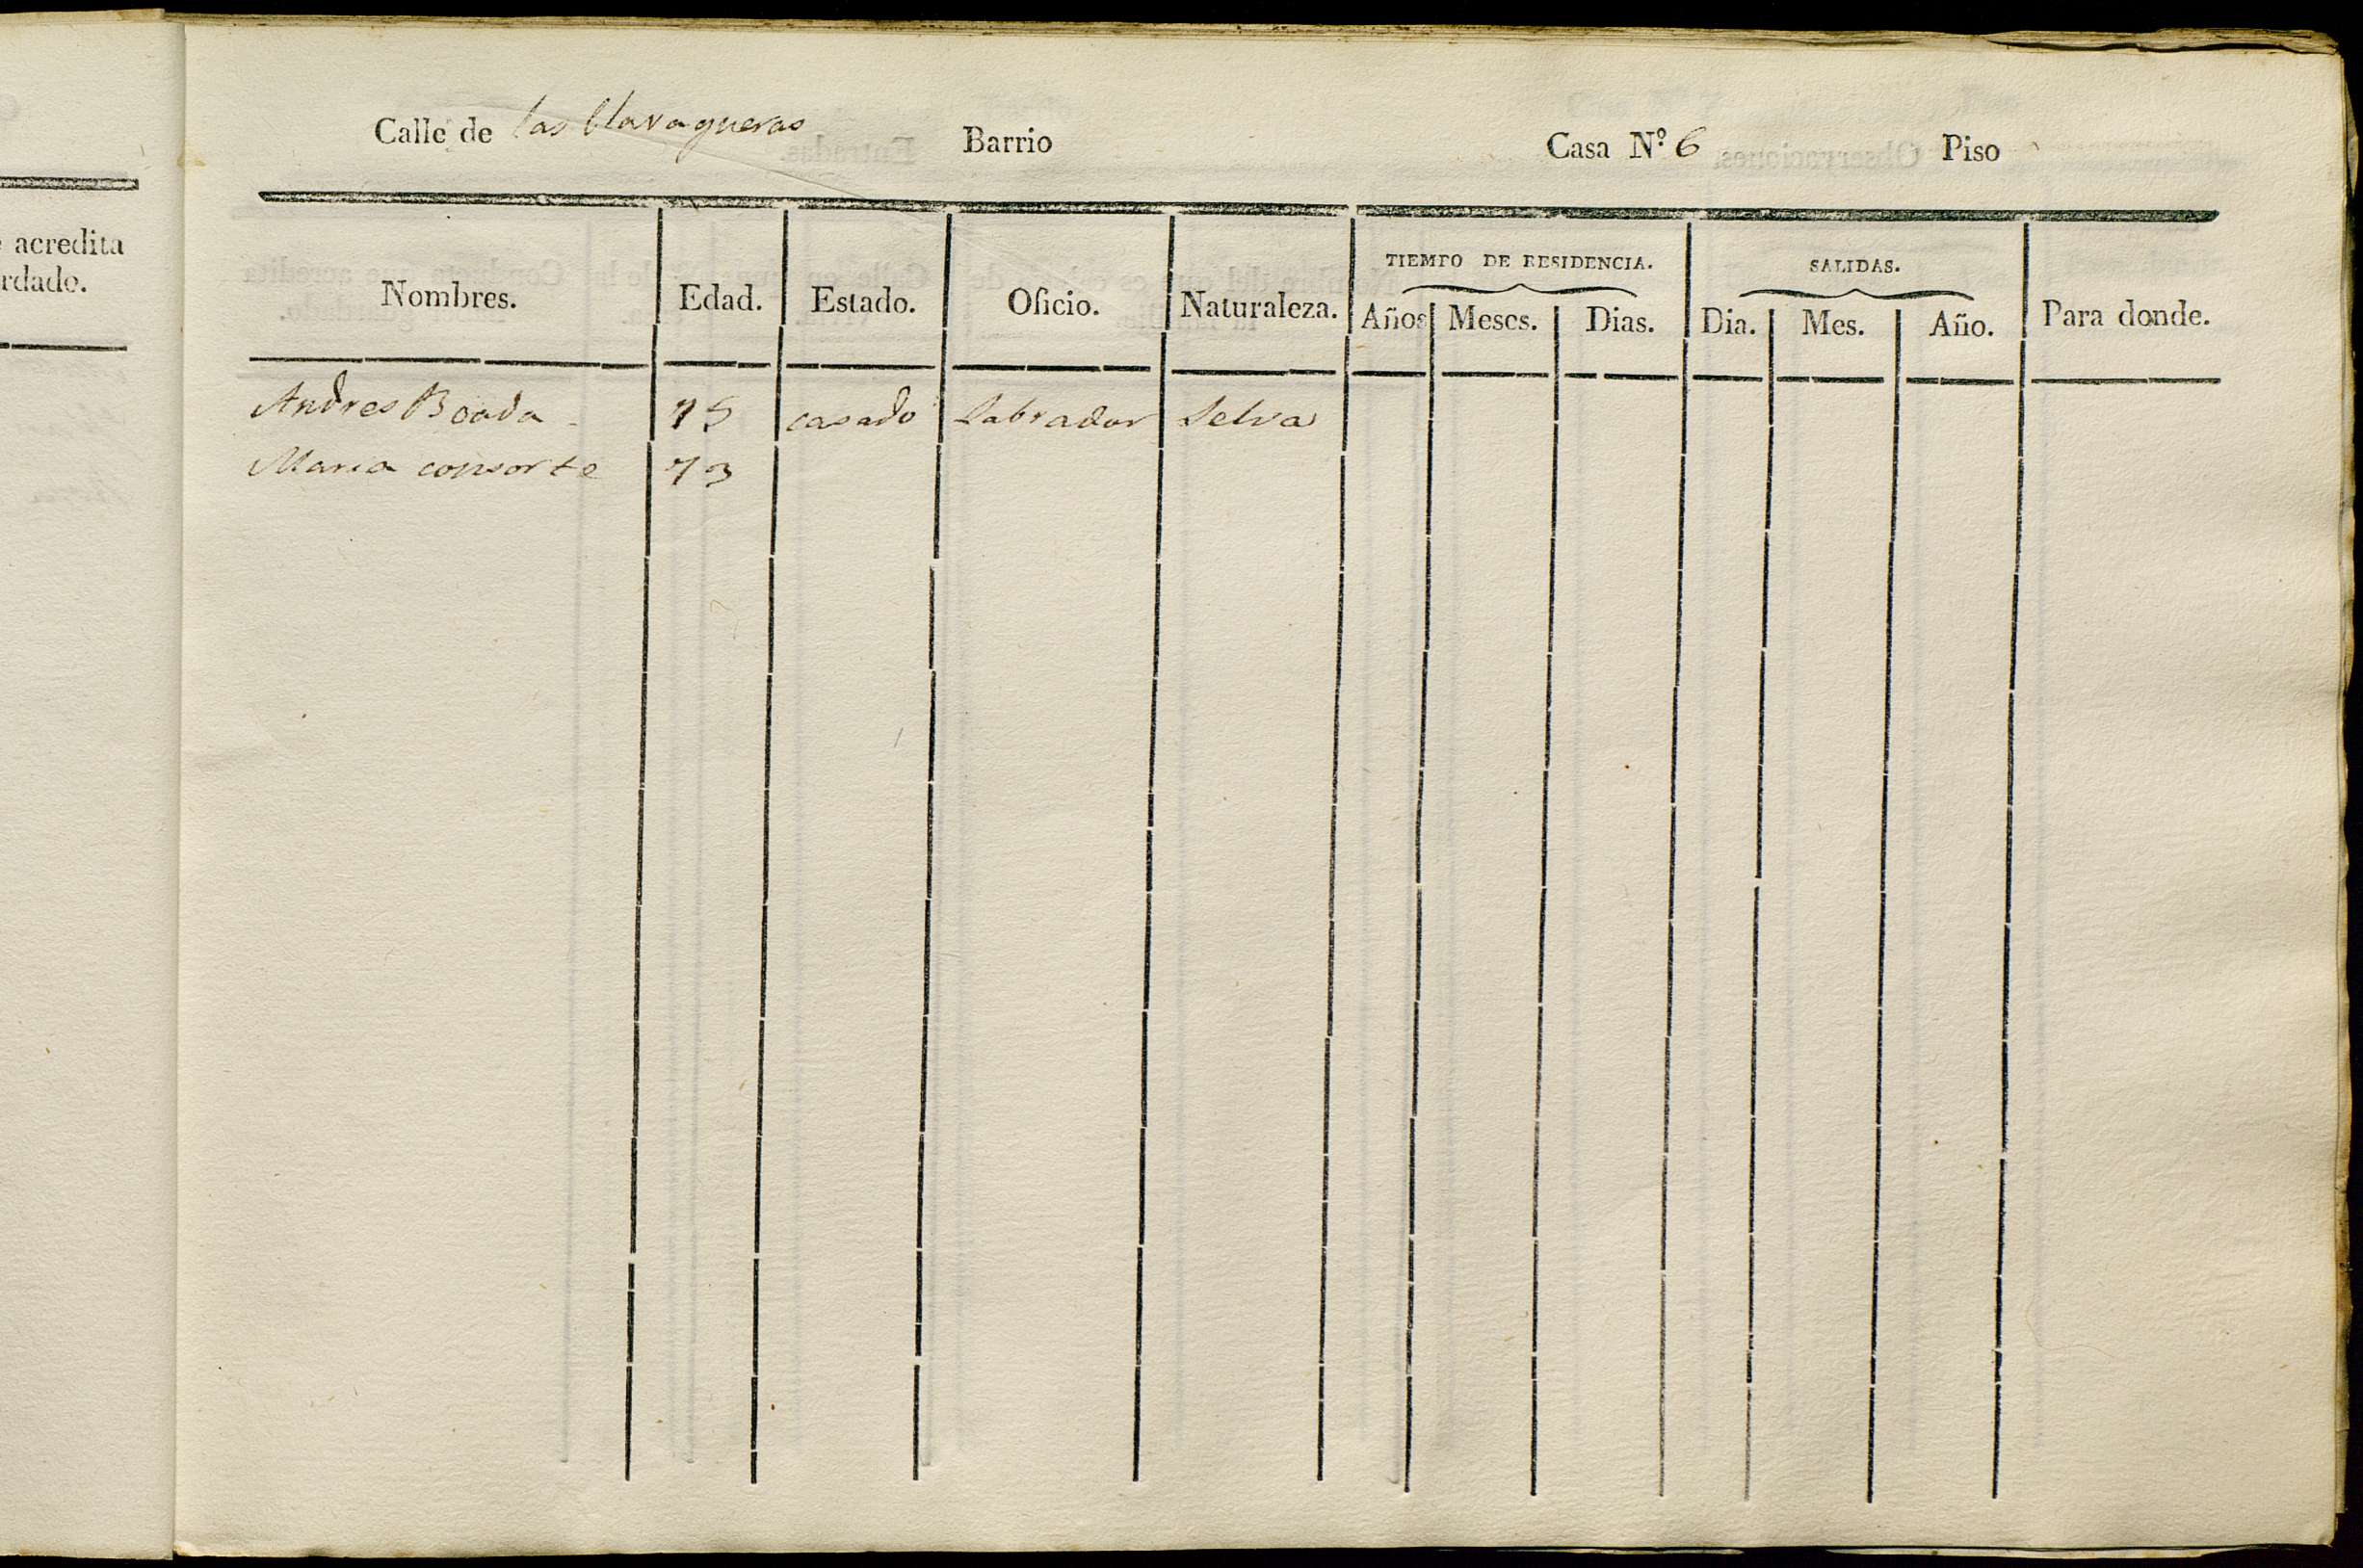 acredita
rdado.
Calle de las Clavagueras Barrio Casa N.º 6 Piso
Nombres. Edad. Estado. Oficio. Naturaleza. TIEMPO DE RESIDENCIA. Años Meses. Dias. SALIDAS. Dia. Mes. Año. Para donde.
Andres Boada 75 casado Labrador Selva
Maria consorte 73